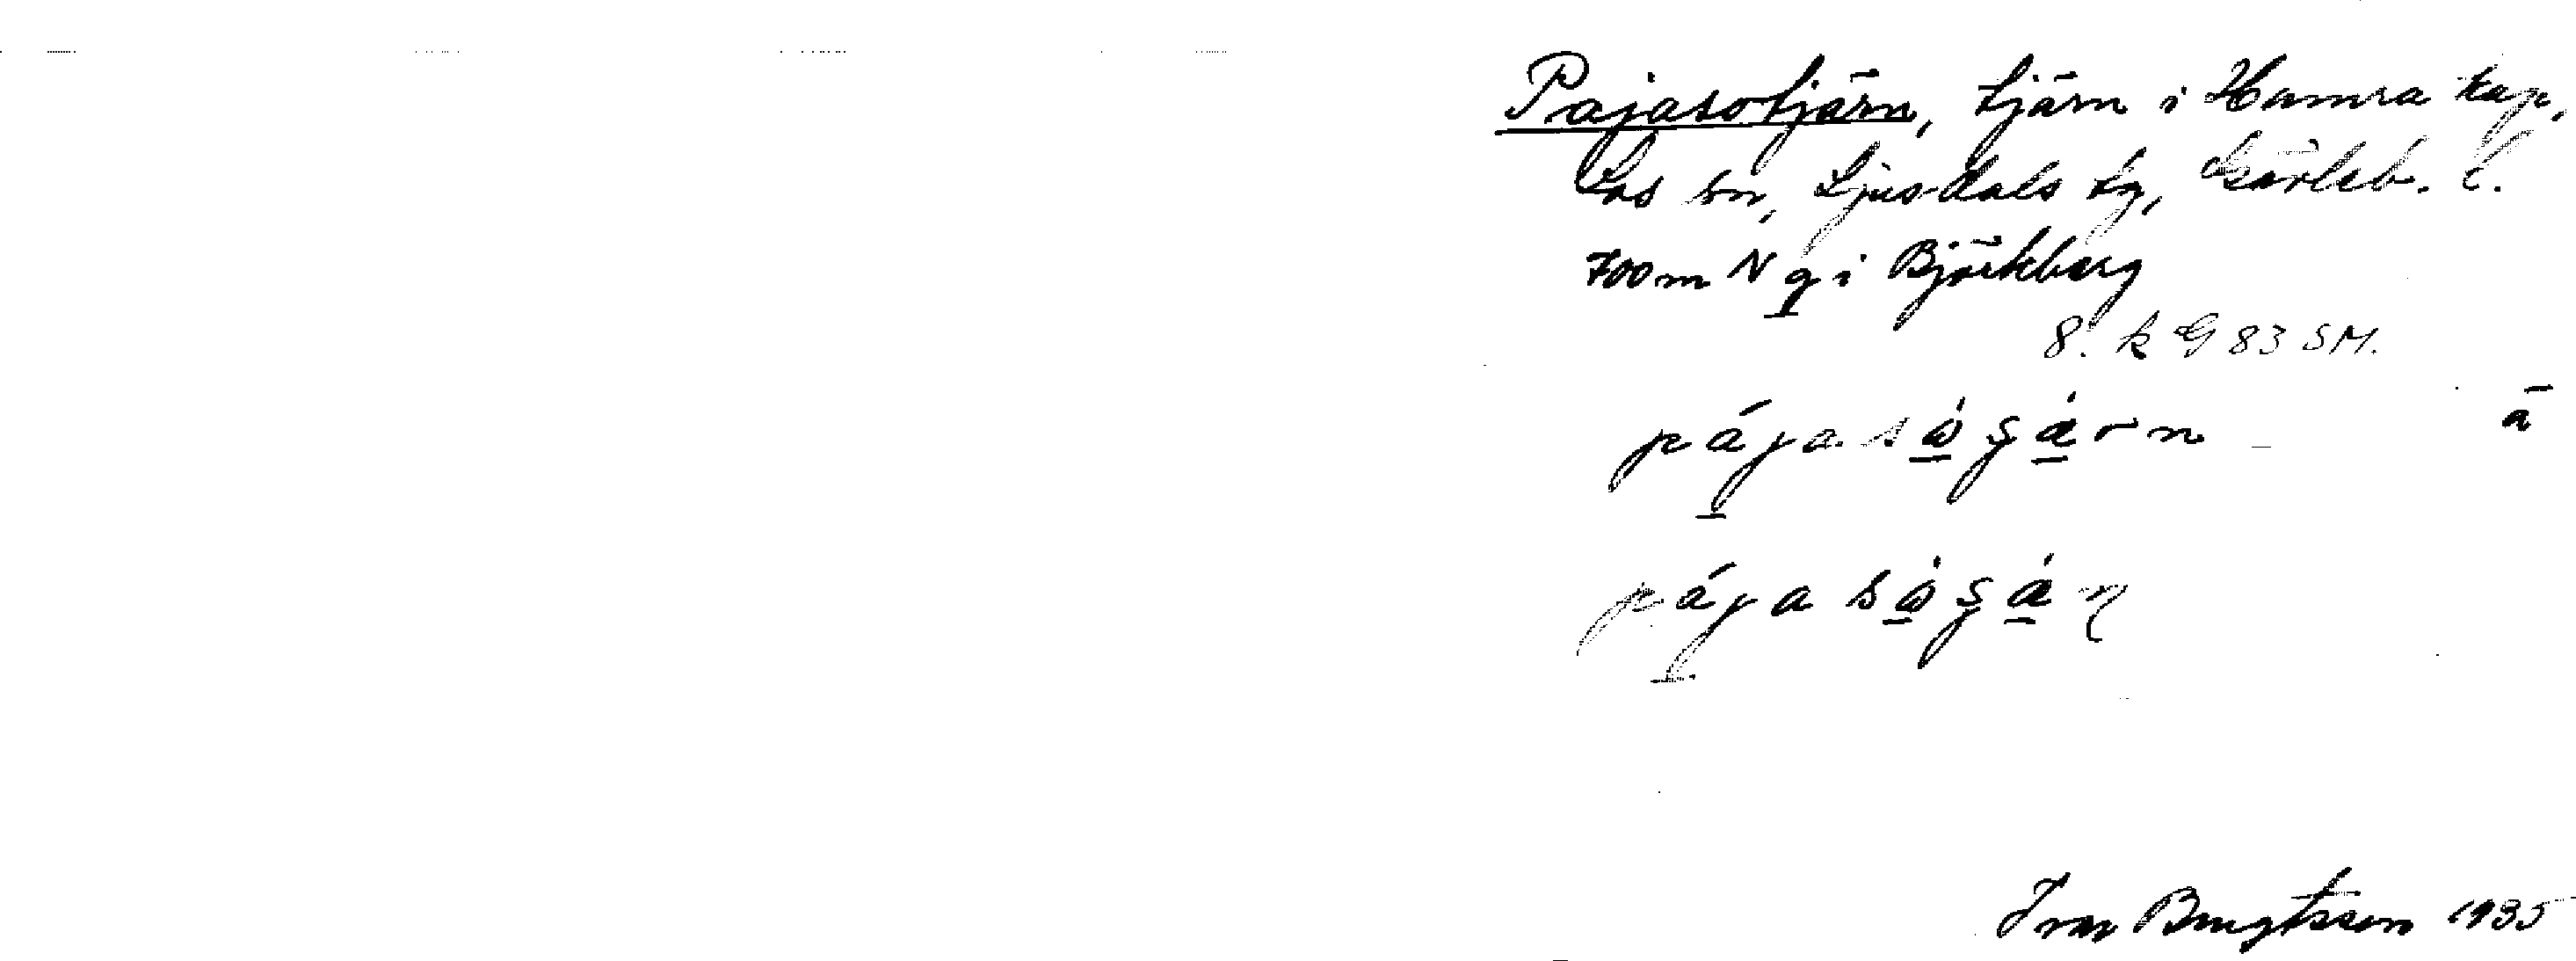 Pajasotjärn, tjärn i Hamra kap,
Los sn, Ljusdals tg, Gävleb. l.
700 m N g i Björkberg
8. k G 83 SM.
ā
Ivar Bengtsson 1935